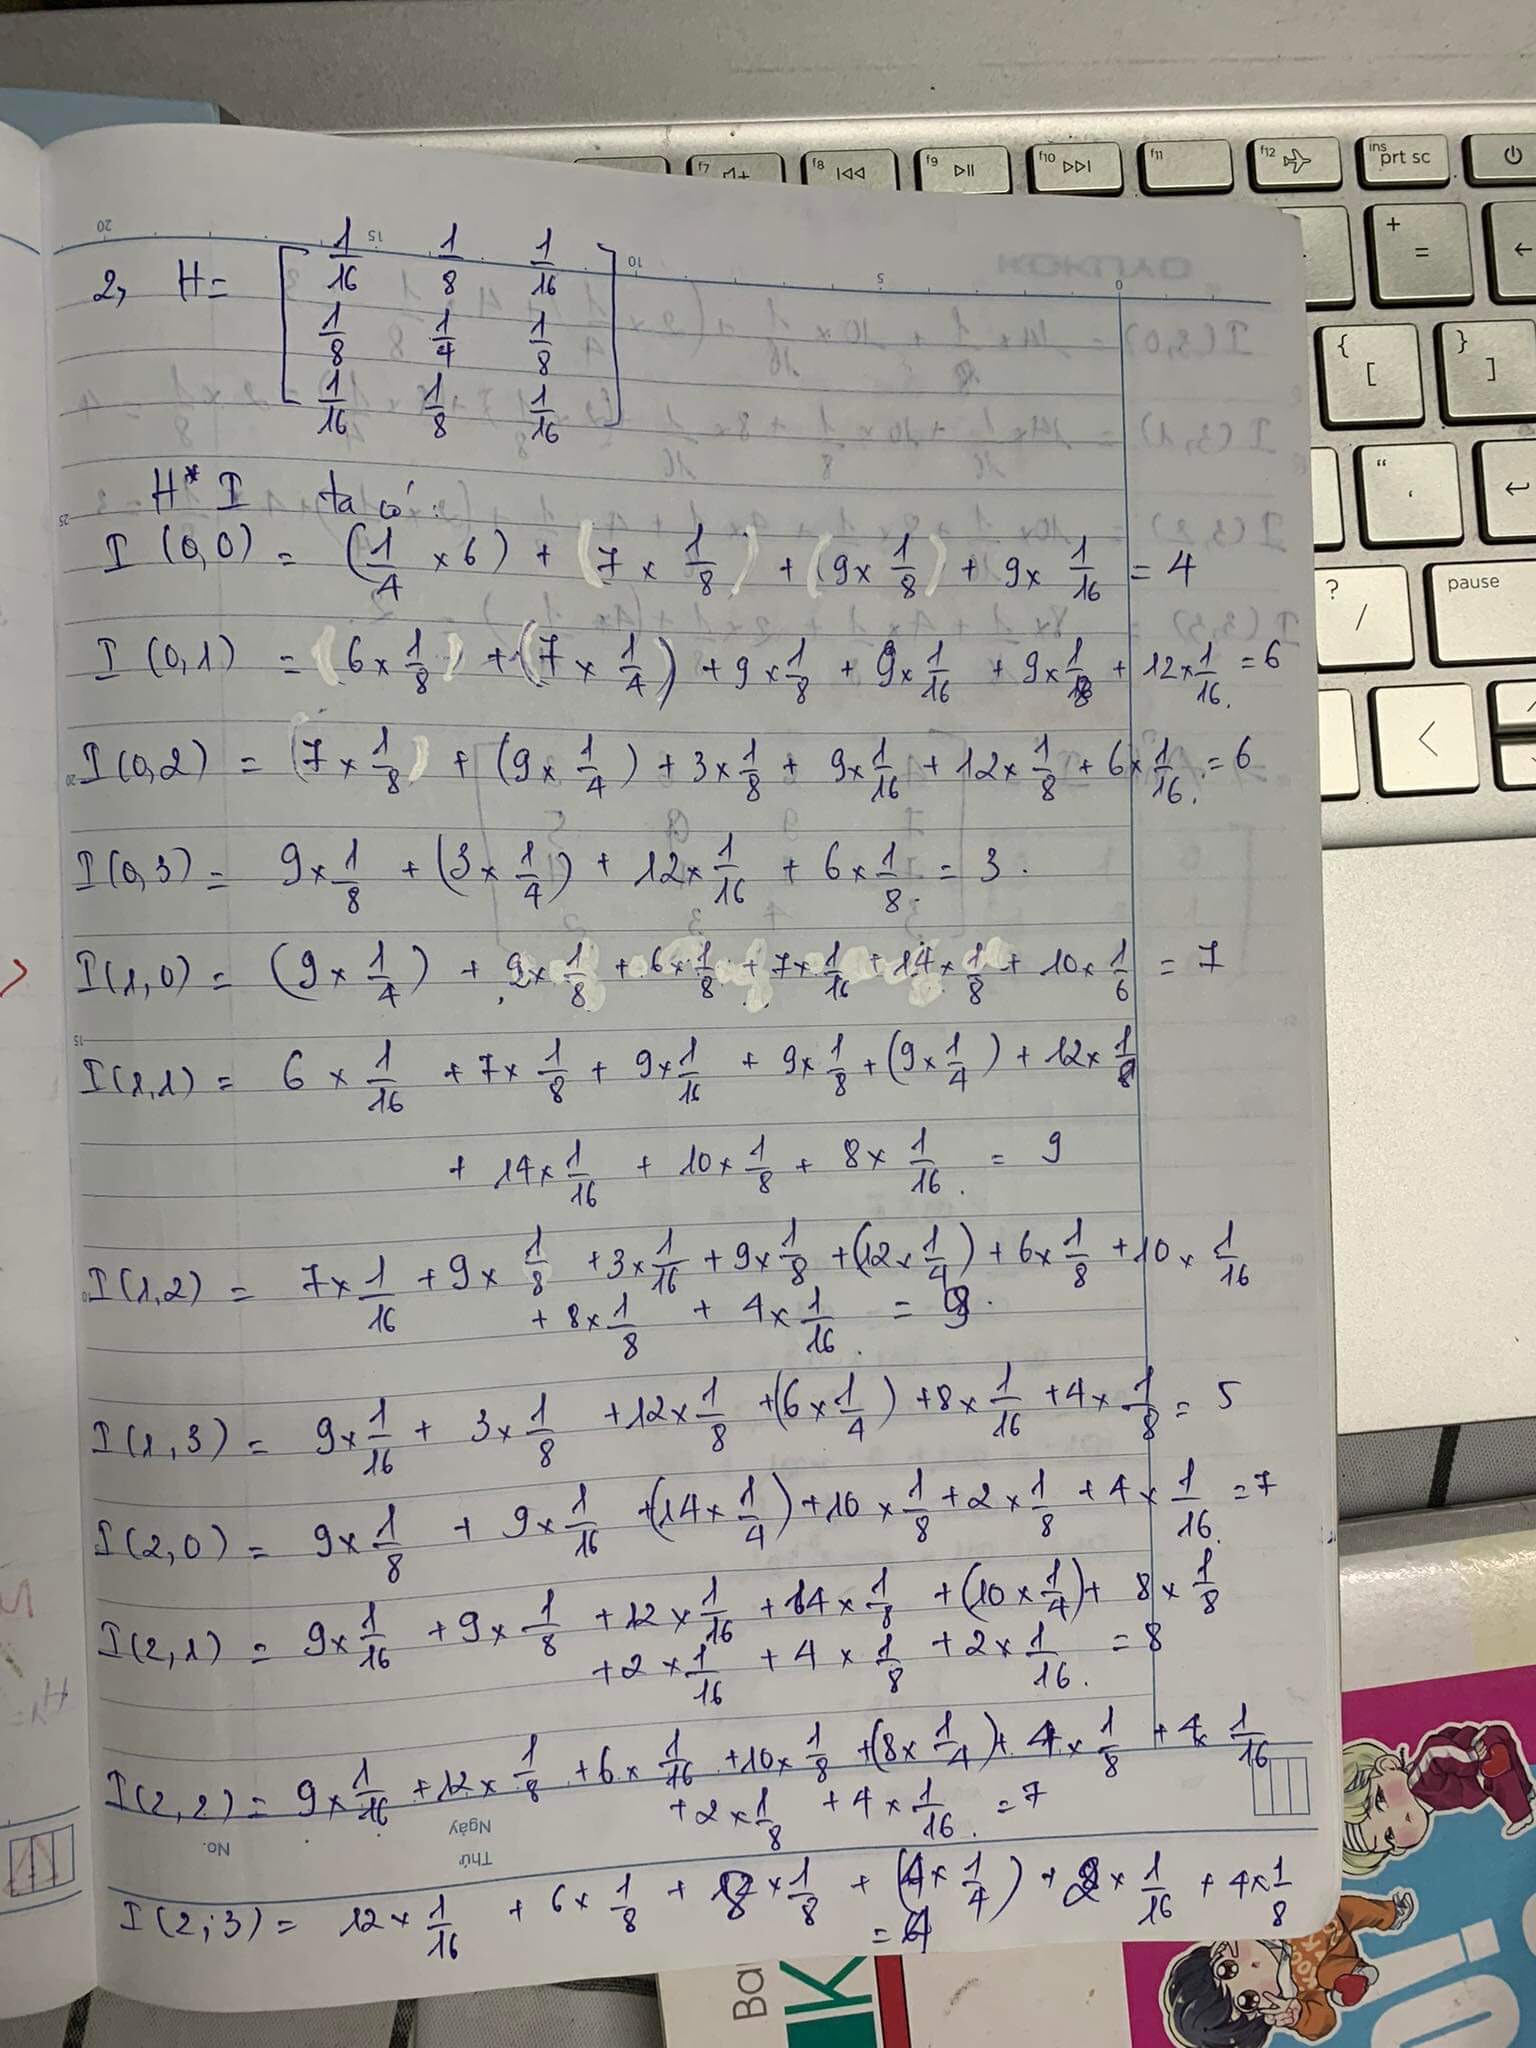 2, H = [ 1/16 1/8 1/16
1/8 1/4 1/8
1/16 1/8 1/16 ]
H * I ta có:
I (0,0) = (1/4 × 6) + (7 × 1/8) + (9 × 1/8) + 9 × 1/16 = 4
I (0,1) = (6 × 1/8) + (7 × 1/4) + 9 × 1/8 + 9 × 1/16 + 9 × 1/8 + 12 × 1/16. = 6
I (0,2) = (7 × 1/8) + (9 × 1/4) + 3 × 1/8 + 9 × 1/16 + 12 × 1/8 + 6 × 1/16. = 6
I (0,3) = 9 × 1/8 + (3 × 1/4) + 12 × 1/16 + 6 × 1/8. = 3.
I (1,0) = (9 × 1/4) + 9 × 1/8 + 6 × 1/8 + 7 × 1/16 + 14 × 1/8 + 10 × 1/6 = 7
I (1,1) = 6 × 1/16 + 7 × 1/8 + 9 × 1/16 + 9 × 1/8 + (9 × 1/4) + 12 × 1/8
+ 14 × 1/16 + 10 × 1/8 + 8 × 1/16. = 9
I (1,2) = 7 × 1/16 + 9 × 1/8 + 3 × 1/16 + 9 × 1/8 + (12 × 1/4) + 6 × 1/8 + 10 × 1/16
+ 8 × 1/8 + 4 × 1/16. =
I (1,3) = 9 × 1/16 + 3 × 1/8 + 12 × 1/8 + (6 × 1/4) + 8 × 1/16 + 4 × 1/8 = 5
I (2,0) = 9 × 1/8 + 9 × 1/16 + (14 × 1/4) + 10 × 1/8 + 2 × 1/8 + 4 × 1/16. = 7
I (2,1) = 9 × 1/16 + 9 × 1/8 + 12 × 1/16 + 14 × 1/8 + (10 × 1/4) + 8 × 1/8
+ 2 × 1/16 + 4 × 1/8 + 2 × 1/16. = 8
I (2,2) = 9 × 1/16 + 12 × 1/8 + 6 × 1/16 + 10 × 1/8 + (8 × 1/4) + 4 × 1/8 + 4 × 1/16
+ 2 × 1/8 + 4 × 1/16. = 7
Ngày
No.
Thứ
I (2,3) = 12 × 1/16 + 6 × 1/8 + 8 × 1/8 + (4 × 1/4) + 2 × 1/16 + 4 × 1/8
= 4
f7
f8
f9
f10
f11
f12
ins
prt sc
+
=
{
[
}
]
“
‘
?
/
pause
<
20
15
10
5
0
25
20
15
Ba
K